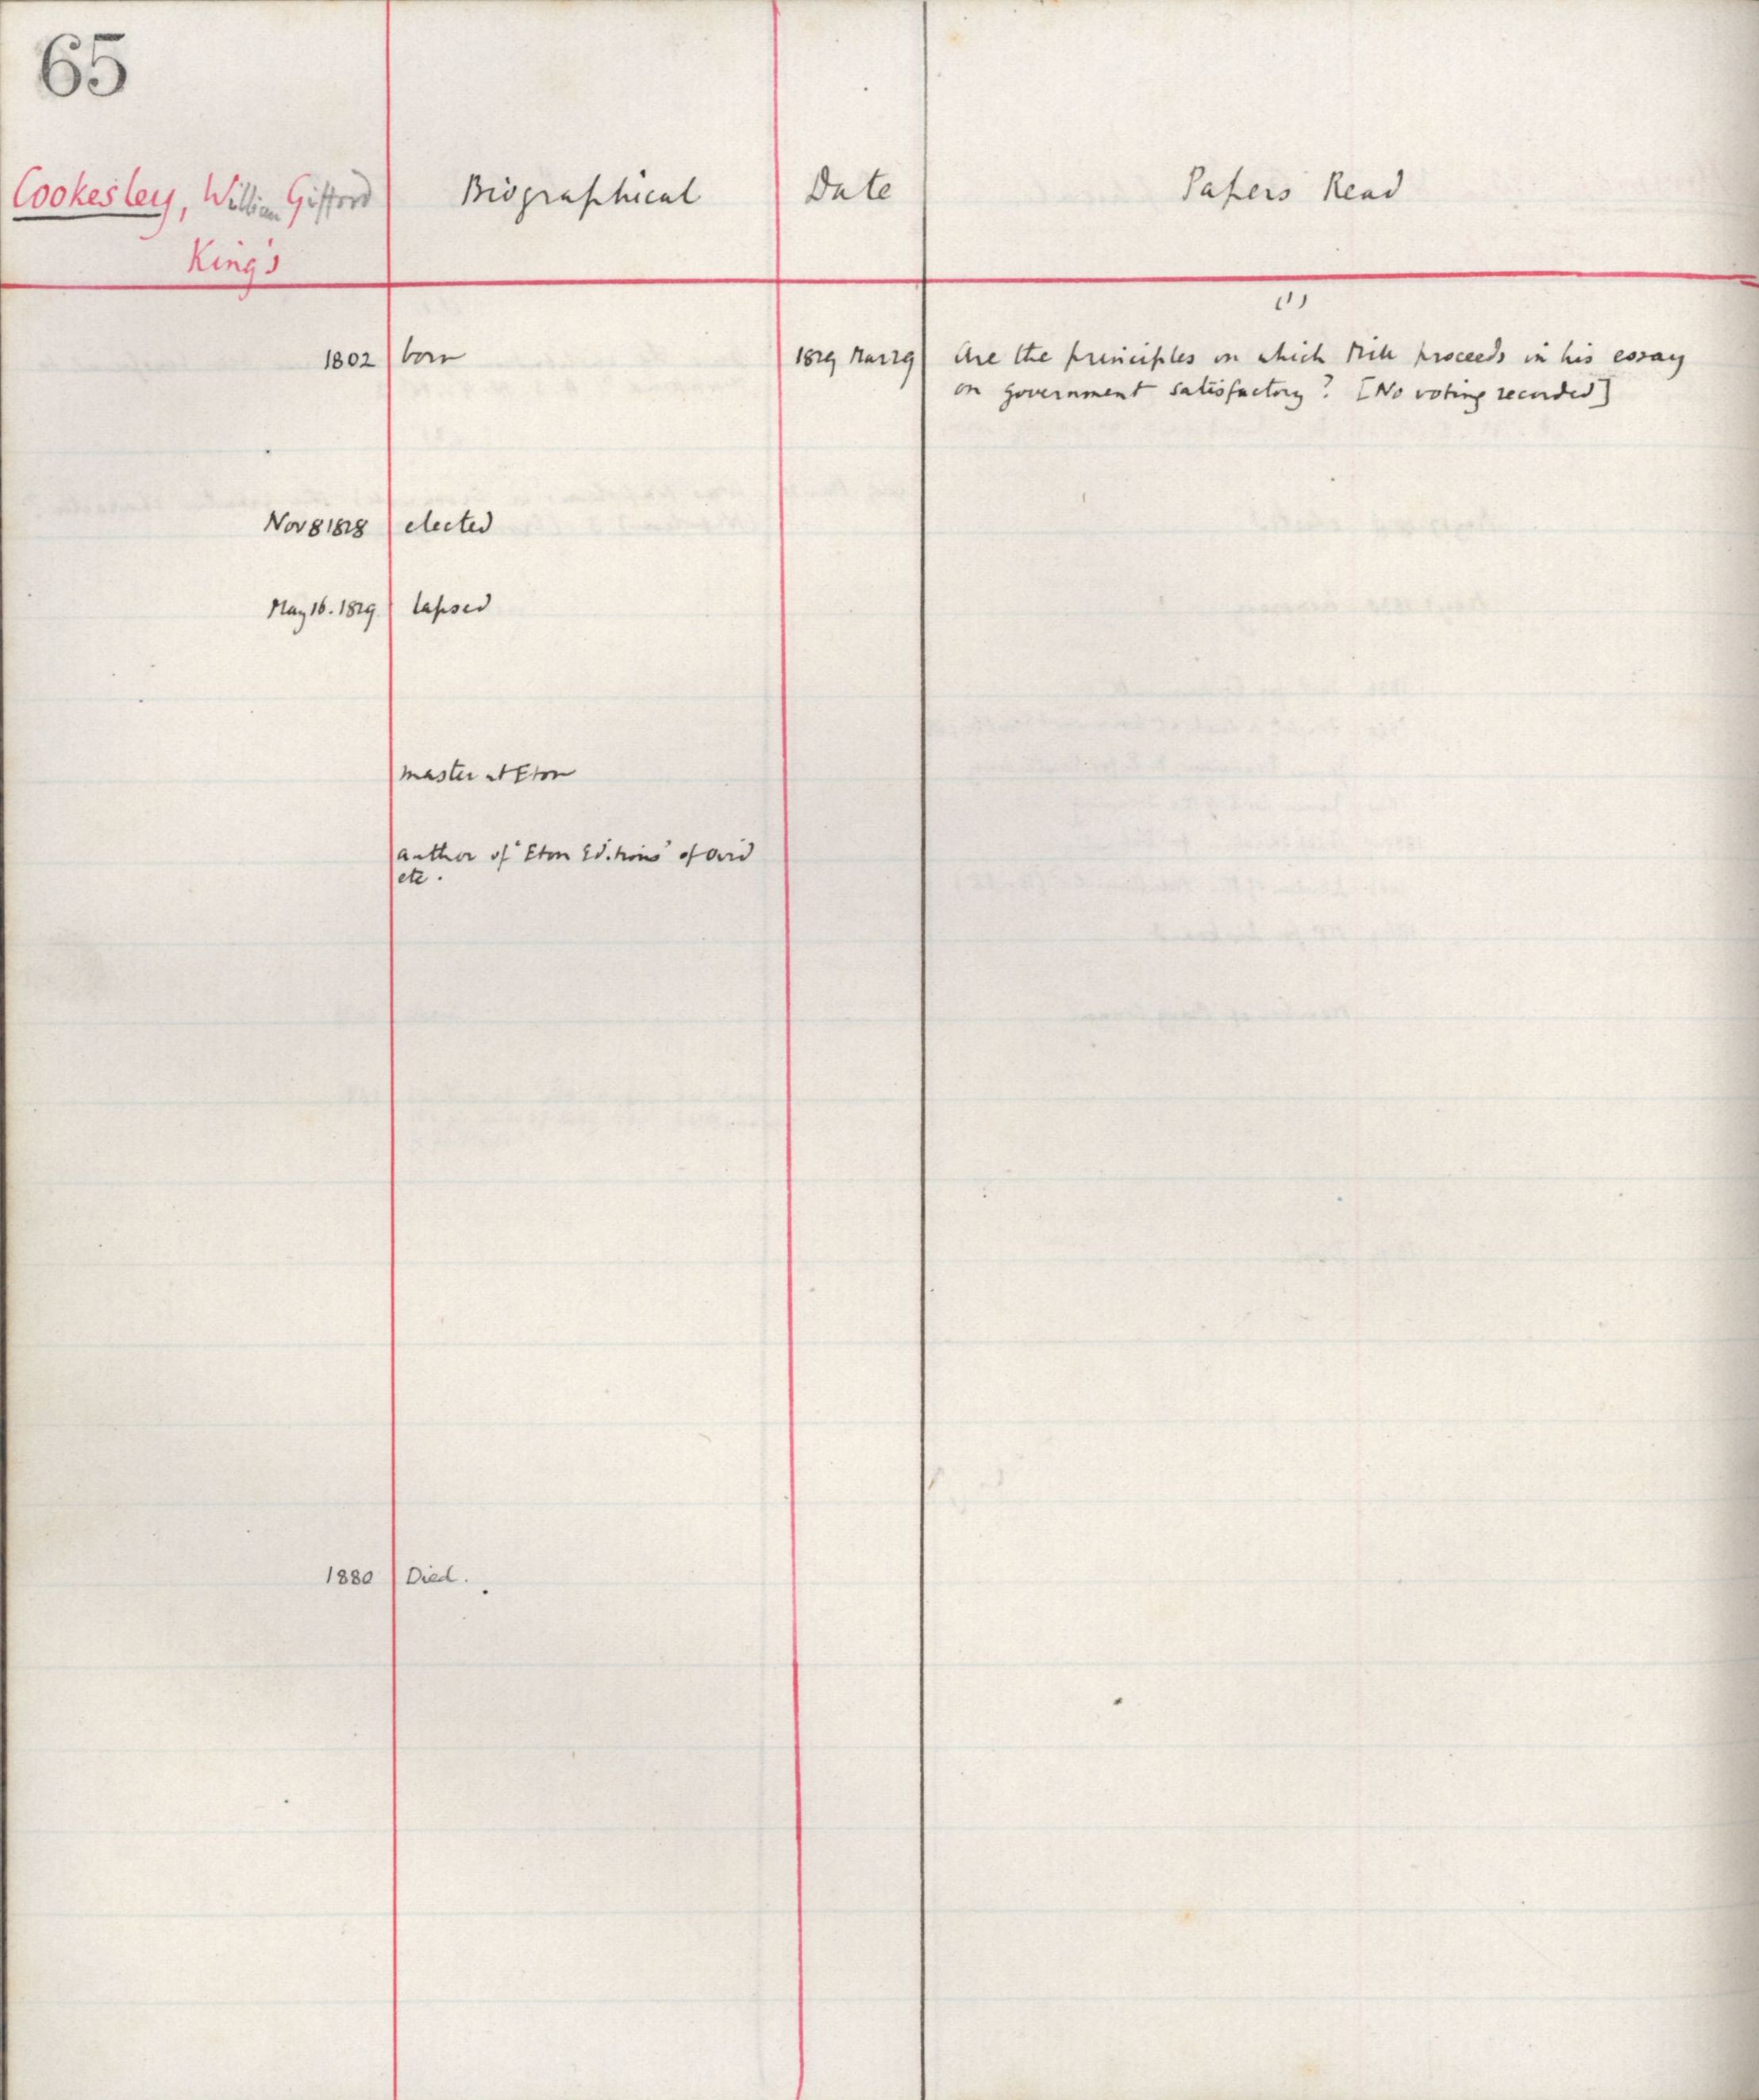 65
Cookesley, William Gifford
King's
Biographical
Date
Papers Read
(1)
1802 born
1829 Mar 29 Are the principles on which Mill proceeds in his essay
on government satisfactory? [No voting recorded]
Nov 8 1828 elected
May 16. 1829 lapsed
master at Eton
author of "Eton Editions" of Ovid
etc.
1880 Died.